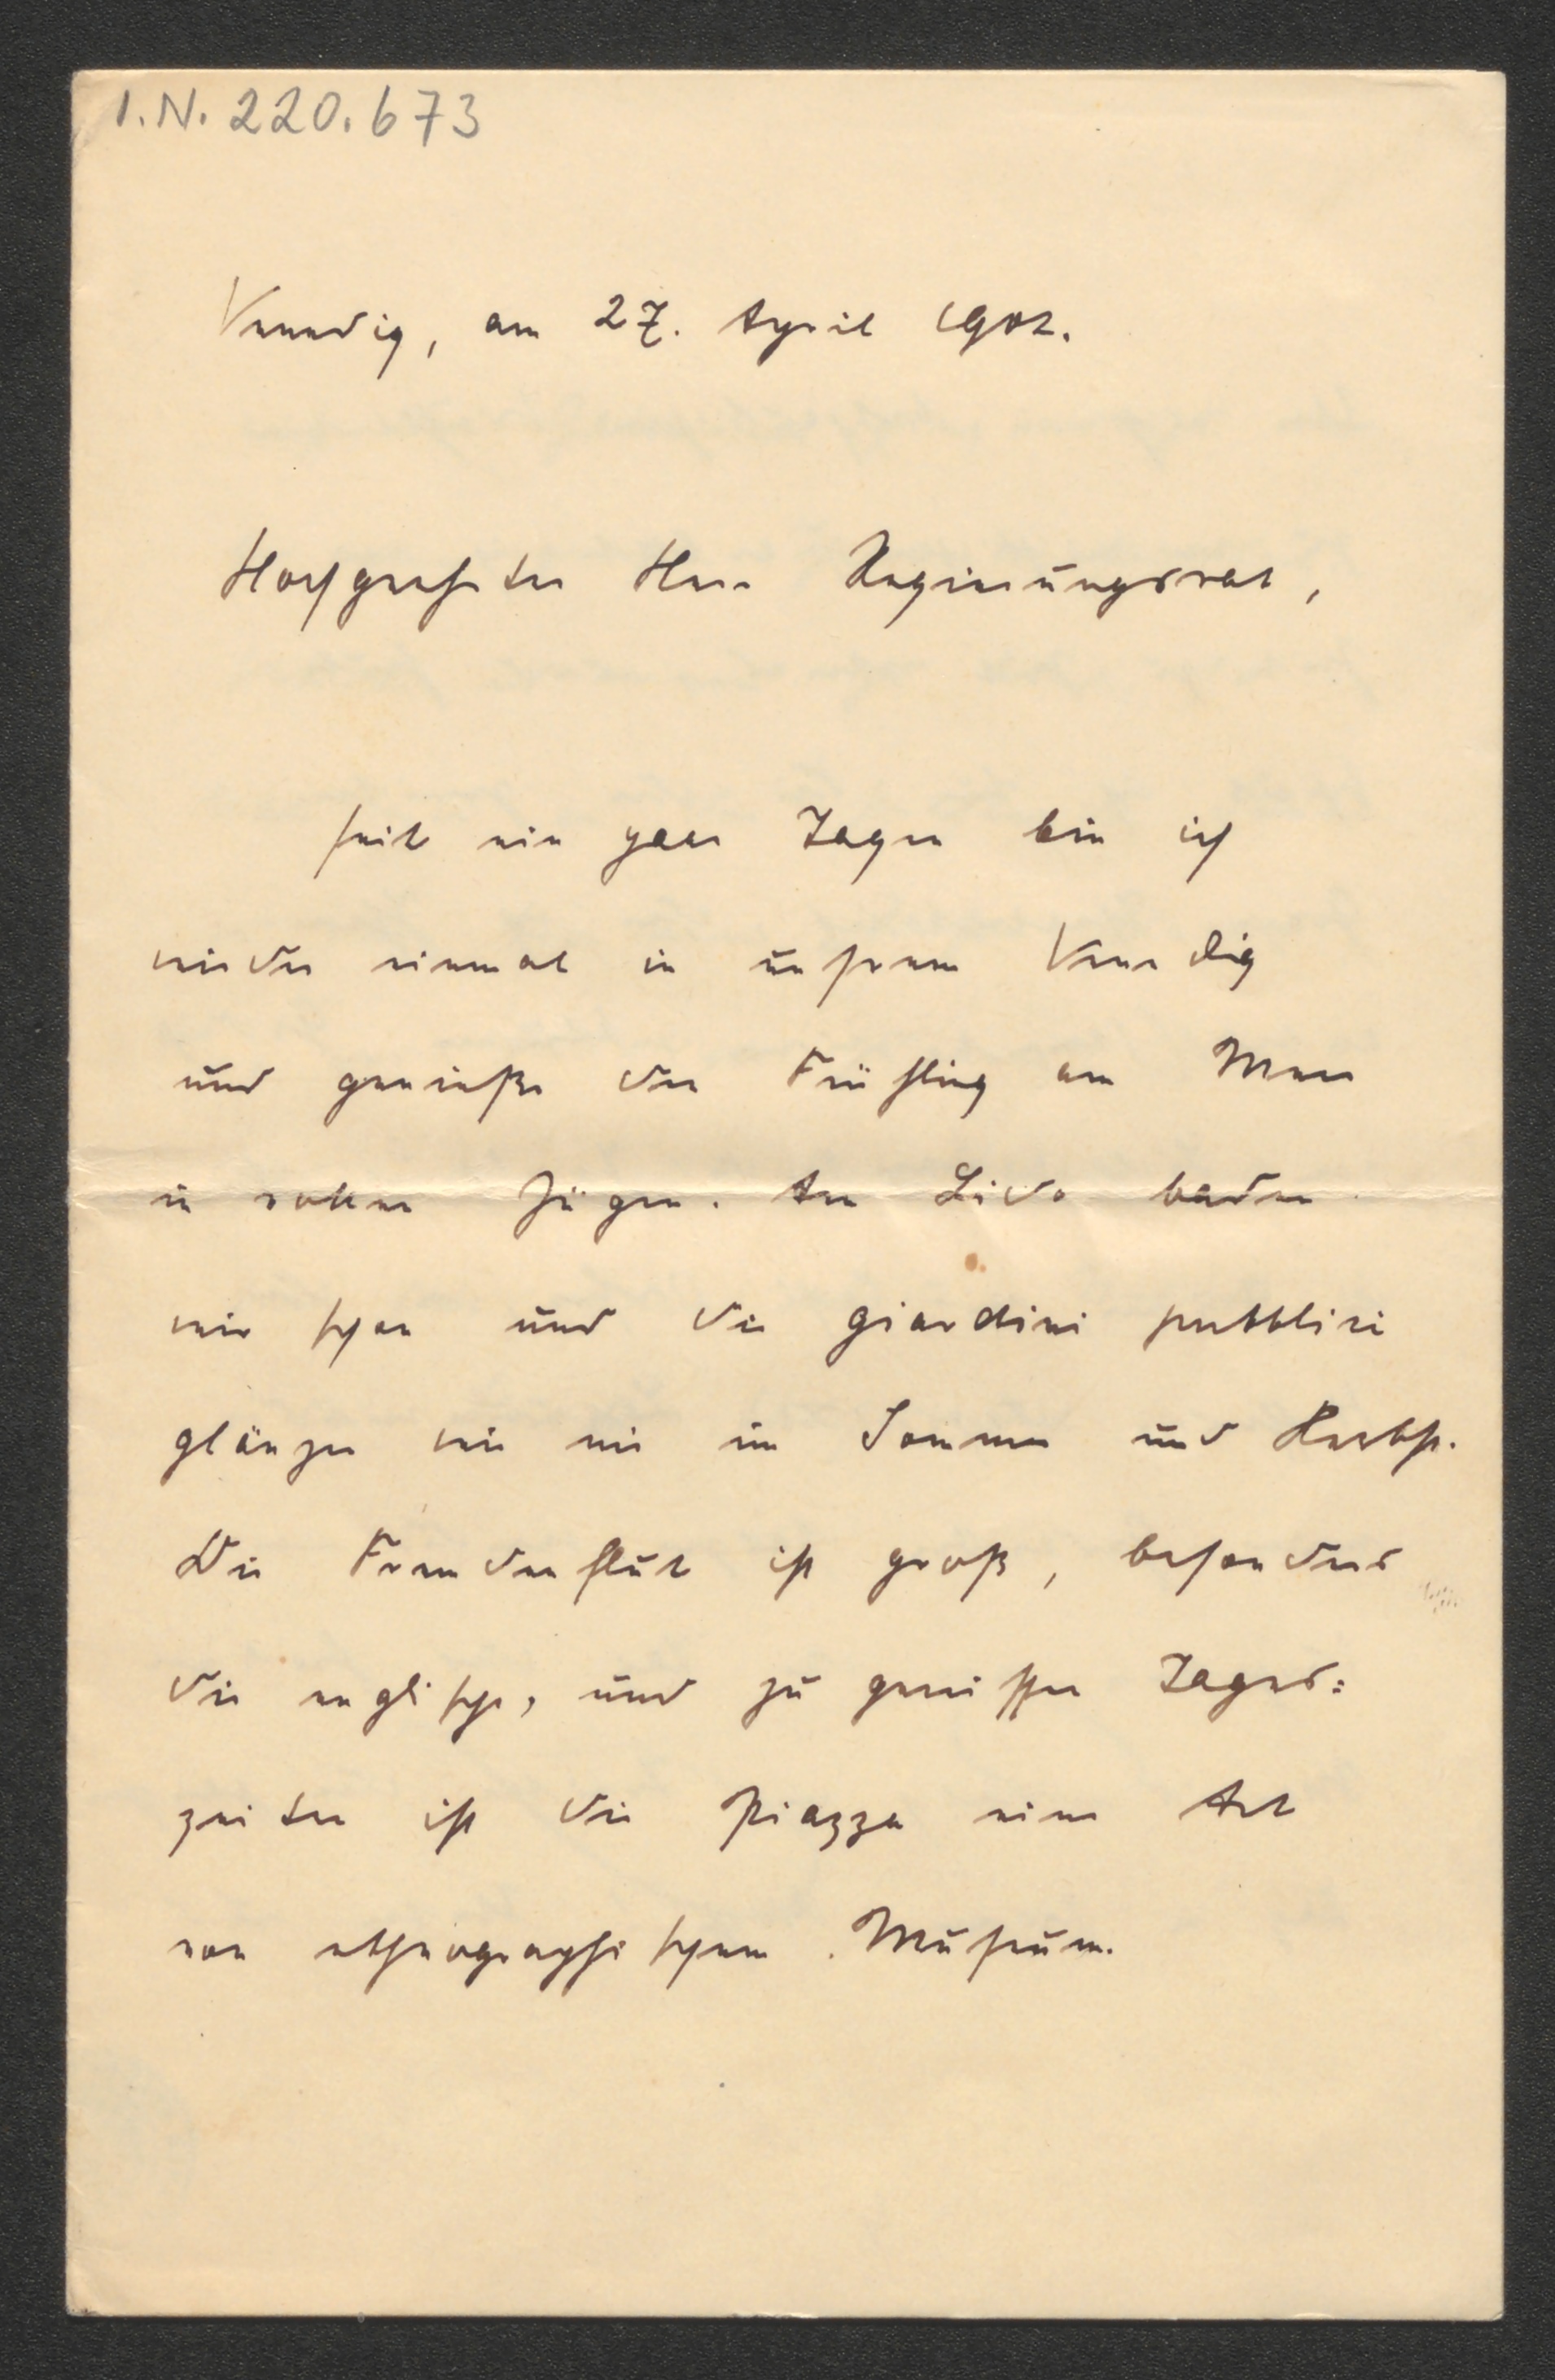 I.N. 220.673
Venedig, am 27. April 1902.
Hochgeehrter Herr Regierungsrat,
seit ein paar Tagen bin ich
wieder einmal in unserem Venedig
und genieße den Frühling am Meer
in vollen Zügen. Am Lido baden
wir schon und die giardini pubblici
glänzen wie nie im Sommer und Herbst.
Die Fremdenflut ist groß, besonders
die englische, und zu gewissen Tages=
zeiten ist die Piazza eine Art
von ethnographischem Museum.